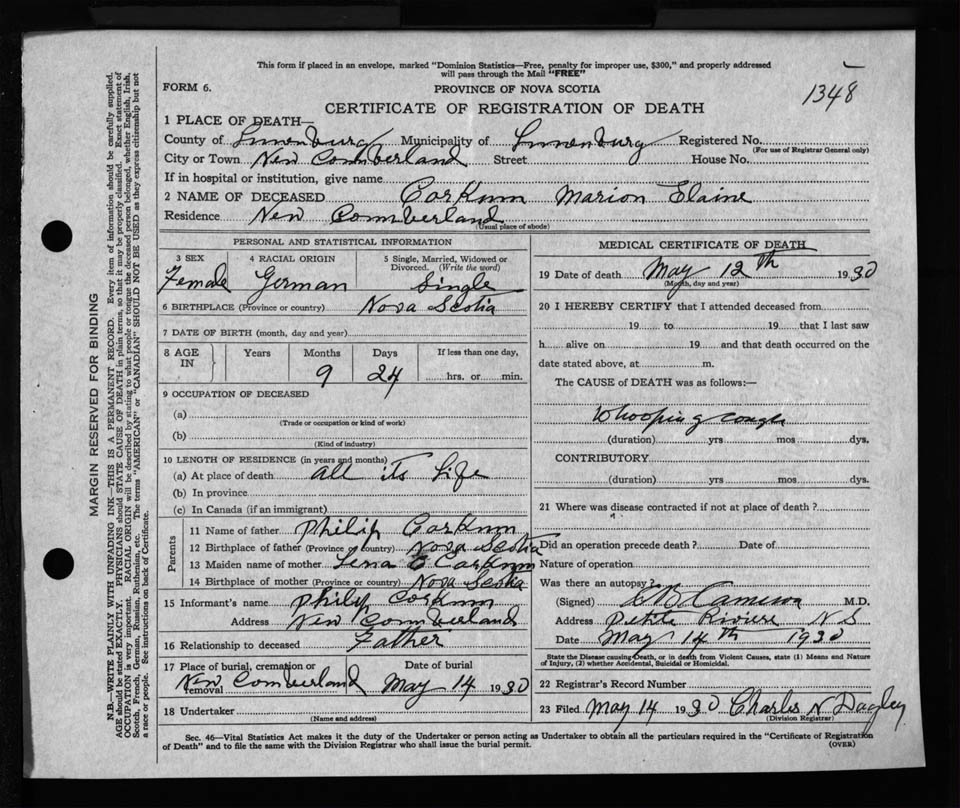 This form if placed in an envelope, marked "Dominion Statistics—Free, penalty for improper use, $300," and properly addressed
will pass through the Mail "FREE"
FORM 6.
PROVINCE OF NOVA SCOTIA
1348
CERTIFICATE OF REGISTRATION OF DEATH
1 PLACE OF DEATH—
County of Lunenburg Municipality of Lunenburg Registered No.
(For use of Registrar General only)
City or Town New Comberland Street House No.
If in hospital or institution, give name
2 NAME OF DECEASED Corkum Marion Elaine
Residence New Comberland
(Usual place of abode)
PERSONAL AND STATISTICAL INFORMATION
3 SEX 4 RACIAL ORIGIN 5 Single, Married, Widowed or
Divorced. (Write the word)
Female German Single
6 BIRTHPLACE (Province or country) Nova Scotia
7 DATE OF BIRTH (month, day and year)
8 AGE IN Years Months Days If less than one day,
9 24 hrs. or min.
9 OCCUPATION OF DECEASED
(a)
(Trade or occupation or kind of work)
(b)
(Kind of industry)
10 LENGTH OF RESIDENCE (in years and months)
(a) At place of death all its life
(b) In province
(c) In Canada (if an immigrant)
Parents
11 Name of father Philip Corkum
12 Birthplace of father (Province or country) Nova Scotia
13 Maiden name of mother Lena C Corkum
14 Birthplace of mother (Province or country) Nova Scotia
15 Informant's name Philip Corkum
Address New Comberland
16 Relationship to deceased Father
17 Place of burial, cremation or Date of burial
removal New Comberland May 14 1930
18 Undertaker
(Name and address)
MEDICAL CERTIFICATE OF DEATH
19 Date of death May 12th 1930
(Month, day and year)
20 I HEREBY CERTIFY that I attended deceased from
19 to 19 that I last saw
h alive on 19 and that death occurred on the
date stated above, at m.
The CAUSE of DEATH was as follows:—
Whooping cough
(duration) yrs mos dys.
CONTRIBUTORY
(duration) yrs mos dys.
21 Where was disease contracted if not at place of death?
Did an operation precede death? Date of
Nature of operation
Was there an autopsy?
(Signed) Cameron M.D.
Address Petite Riviere N S
Date May 14th 1930
State the Disease causing Death, or in death from Violent Causes, state (1) Means and Nature
of Injury, (2) whether Accidental, Suicidal or Homicidal.
22 Registrar's Record Number
23 Filed May 14 1930 Charles N Dagley
(Division Registrar)
Sec. 46—Vital Statistics Act makes it the duty of the Undertaker or person acting as Undertaker to obtain all the particulars required in the "Certificate of Registration
of Death" and to file the same with the Division Registrar who shall issue the burial permit. (OVER)
MARGIN RESERVED FOR BINDING
N.B.—WRITE PLAINLY WITH UNFADING INK—THIS IS A PERMANENT RECORD. Every item of information should be carefully supplied.
AGE should be stated EXACTLY. PHYSICIANS should STATE CAUSE OF DEATH in plain terms, so that it may be properly classified. Exact statement of
OCCUPATION is very important. RACIAL ORIGIN will be described by stating to what people or tongue the deceased person belonged, whether English, Irish,
Scotch, French, German, Russian, Ruthenian, etc. The terms "AMERICAN" or "CANADIAN" SHOULD NOT BE USED as they express citizenship but not
a race or people. See instructions on back of Certificate.